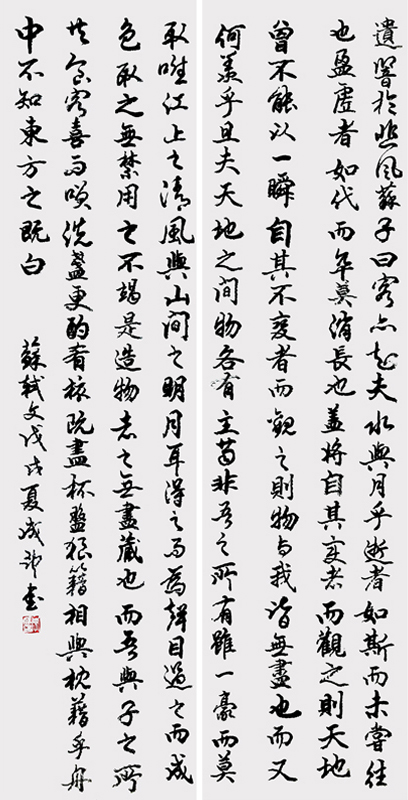 遺響於悲風蘇子曰客亦知夫水與月乎逝者如斯而未嘗往
也盈虛者如代而卒莫消長也蓋將自其變者而觀之則天地
曾不能以一瞬自其不變者而觀之則物與我皆無盡也而又
何羨乎且夫天地之間物各有主苟非吾之所有雖一豪而莫
取唯江上之清風與山間之明月耳得之而為聲目遇之而成
色取之無禁用之不竭是造物者之無盡藏也而吾與子之所
共食客喜而咲洗盞更酌肴核既盡杯盤狼籍相與枕藉乎舟
中不知東方之既白
蘇軾文戊戌夏成書